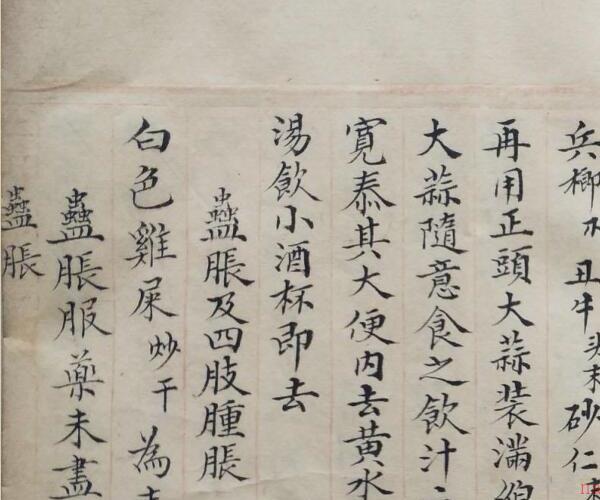 兵榔
丑牛头末砂仁
再用正頭大蒜装滿
大蒜隨意食之飲汁
寬泰其大便内去黄水
湯飲小酒杯即去
蠱脹及四肢腫脹
白色雞屎炒干為
蠱脹服藥未盡
蠱脹